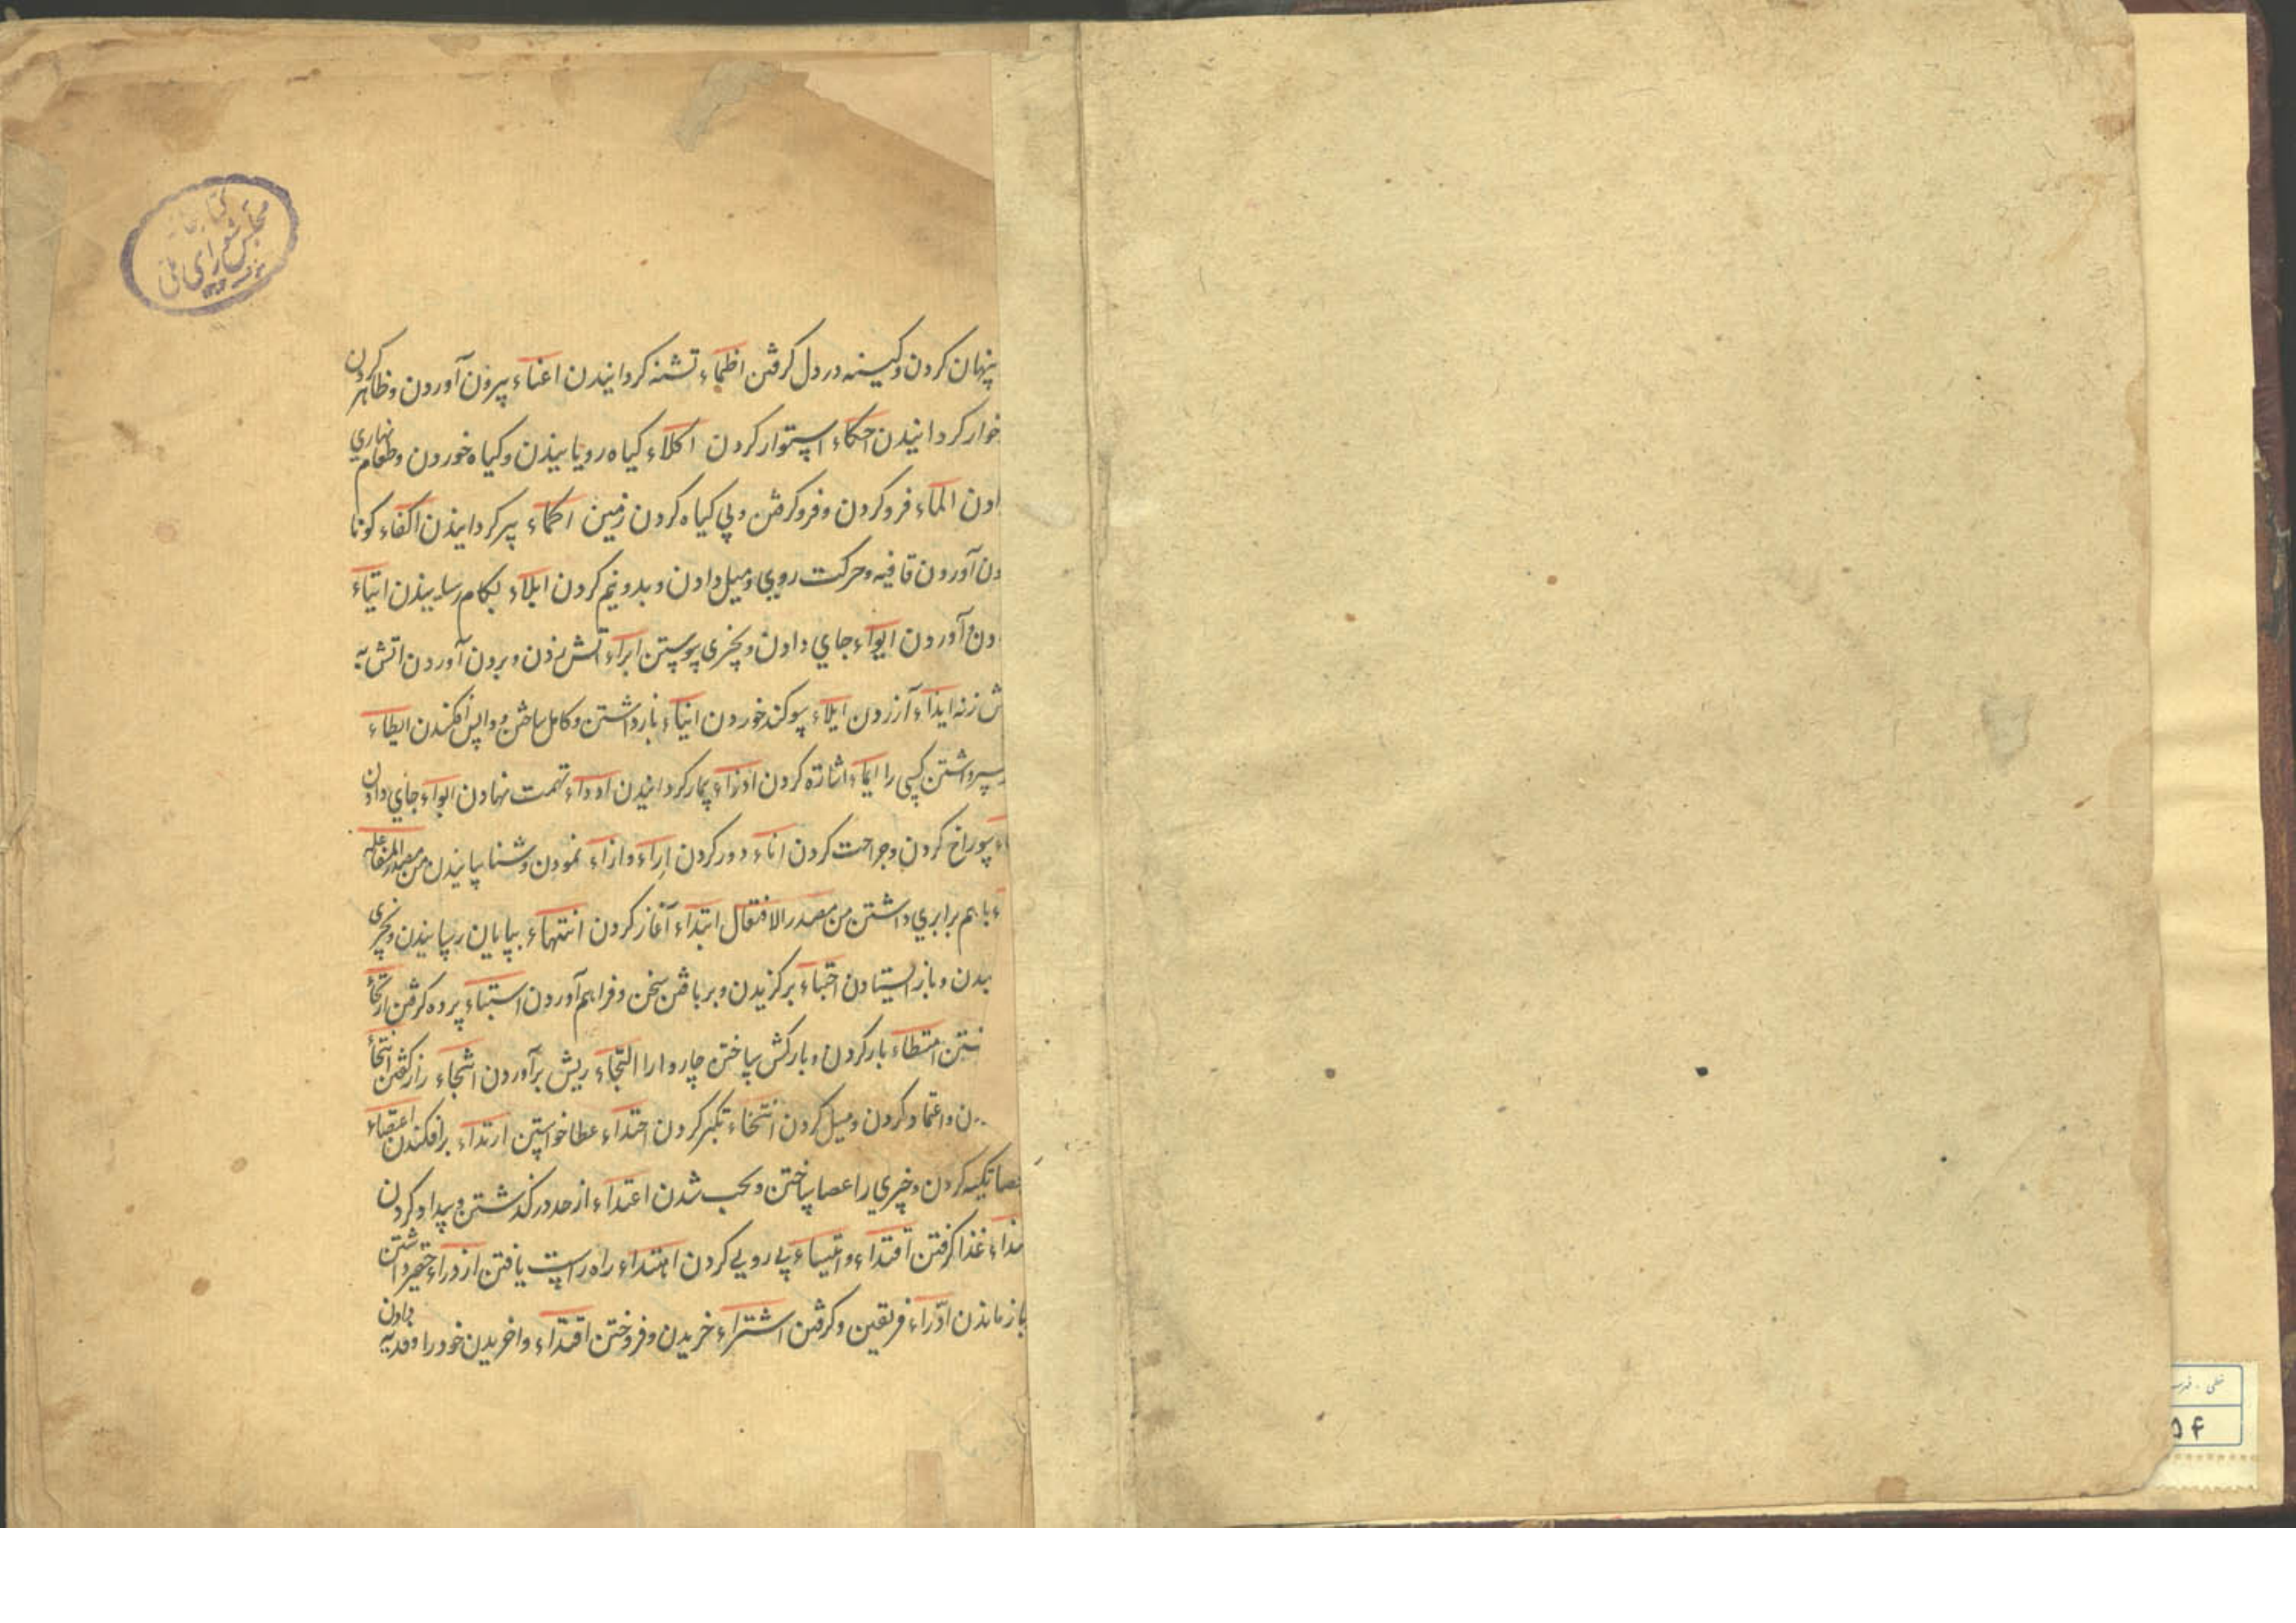 پنهان کردن و کینه در دل گرفتن اظماء تشنه کردانیدن اعناء بیرون آوردن و ظاهر کردن
خوار کردانیدن احکاء استوار کردن اکلاء کیاه رویانیدن و کیاه خوردن و طعام نهاری
دن الماء فرو کردن و فرو کرفتن و بی کیاه کردن زمین اکماء پیر کردانیدن اکفاء کونا
دن آوردن قافیه و حرکت روی و میل دادن و بدو نیم کردن ابلاء بکام رسانیدن ایتاء
دن و آوردن ایواء جای دادن و بچیزی پوستن ابراء آتش زدن و برون آوردن اتش به
ش زنه ایذاء آزردن ایلاء سوکند خوردن ایناء بازداشتن و کامل ساختن و واپس افکندن ایطاء
سپر داشتن کسی را ایماء اشارة کردن ادواء بیمار کردانیدن ادواء تهمت نهادن ایواء جای دادن
اء سوراخ کردن و جراحت کردن اناء دور کردن اراء و ازاء نمودن و شناسانیدن من مصدر المفاعله
ء با هم برابری داشتن من مصدر الافتعال ابتداء آغاز کردن انتهاء بپایان رسانیدن و بچیزی
یدن و باز ایستادن اجتباء برکزیدن و بر بافتن سخن و فراهم آوردن استباء برده کرفتن ارتجاء
شتن امتطاء بار کردن و بارکش ساختن چاروا را التحاء ریش برآوردن انتجاء راز کفتن انتحاء
دن و اعتماد کردن و میل کردن انتخاء تکبر کردن اجتداء عطا خواستن ارتداء برافکندن اعتصاء
عصا تکیه کردن و چیزی را عصا ساختن و شدن اعتداء از حد درکذشتن و بیداد کردن
تذاء غذا کرفتن اقتداء و اقتیساء پی رویی کردن اهتداء راه راست یافتن ازدراء حقیر داشتن
باز ماندن ادّراء فریفتن و کرفتن اشتراء خریدن و فروختن افتداء واخریدن خود را و فدیه دادن
کتابخانه
مجلس شورای
ملی
خطی - فهرست
۵۴